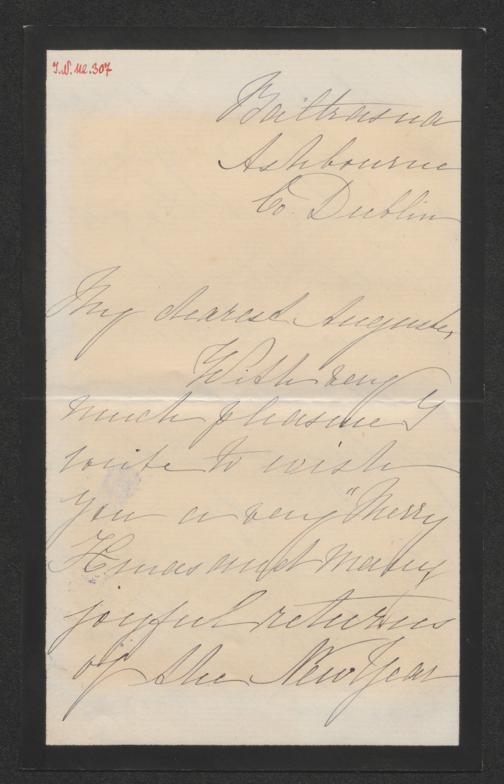 I.N. 112.307
Baltrasna
Ashbourne
Co. Dublin
My dearest Auguste,
With very
much pleasure I
write to wish
you a very "Merry
Xmas and Many
joyful returns
of the New Year